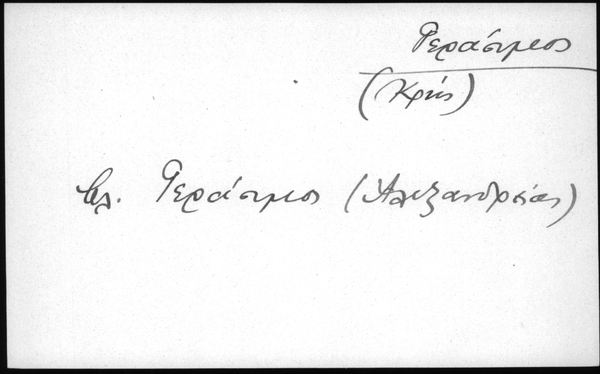 Γεράσιμος
(Κρής)
βλ. Γεράσιμος (Αλεξανδρείας)